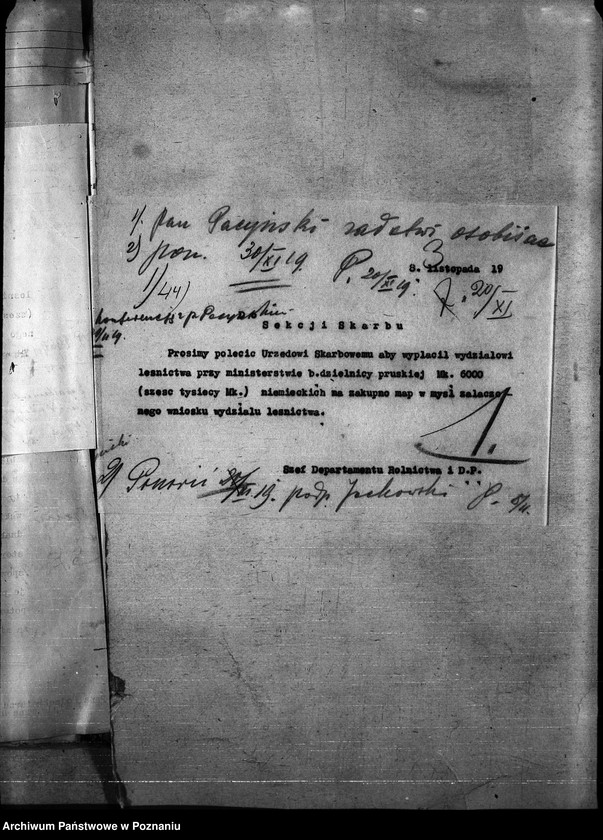 1/. Pan Pacyński załatwi osobiście
2) pon. 30/XI 19.
3
8. listopada 19
P. 20/XI 19.
20/XI
1/44)
konferencja z p. Pacyńskim
Sekcji Skarbu
Prosimy polecic Urzedowi Skarbowemu aby wyplacil wydzialowi
lesnictwa przy ministerstwie b.dzielnicy pruskiej Mk. 6000
(szesc tysiecy Mk.) niemieckich na zakupno map w mysl zalaczo-
nego wniosku wydzialu lesnictwa.
1.
Szef Departamentu Rolnictwa i D.P.
2) Ponowić XI 19. podp. Jackowski
Archiwum Państwowe w Poznaniu